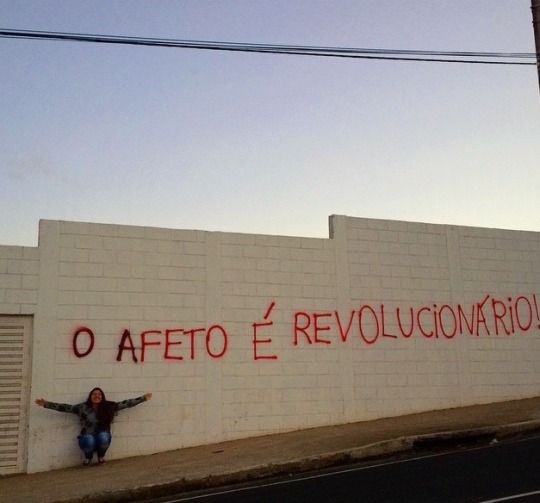 O AFETO É REVOLUCIONÁRIO!